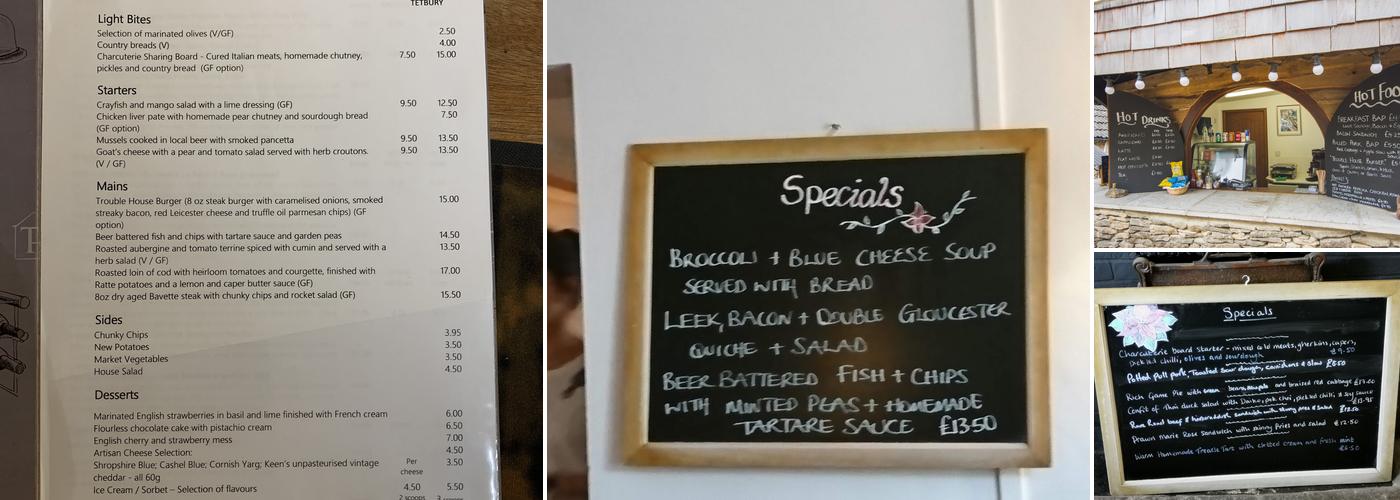 TETBURY
Light Bites
Selection of marinated olives (V/GF) 2.50
Country breads (V) 4.00
Charcuterie Sharing Board - Cured Italian meats, homemade chutney, 7.50 15.00
pickles and country bread (GF option)
Starters
Crayfish and mango salad with a lime dressing (GF) 9.50 12.50
Chicken liver pate with homemade pear chutney and sourdough bread 7.50
(GF option)
Mussels cooked in local beer with smoked pancetta 9.50 13.50
Goat's cheese with a pear and tomato salad served with herb croutons. 9.50 13.50
(V / GF)
Mains
Trouble House Burger (8 oz steak burger with caramelised onions, smoked 15.00
streaky bacon, red Leicester cheese and truffle oil parmesan chips) (GF
option)
Beer battered fish and chips with tartare sauce and garden peas 14.50
Roasted aubergine and tomato terrine spiced with cumin and served with a 13.50
herb salad (V / GF)
Roasted loin of cod with heirloom tomatoes and courgette, finished with 17.00
Ratte potatoes and a lemon and caper butter sauce (GF)
8oz dry aged Bavette steak with chunky chips and rocket salad (GF) 15.50
Sides
Chunky Chips 3.95
New Potatoes 3.50
Market Vegetables 3.50
House Salad 4.50
Desserts
Marinated English strawberries in basil and lime finished with French cream 6.00
Flourless chocolate cake with pistachio cream 6.50
English cherry and strawberry mess 7.00
Artisan Cheese Selection: 4.50
Shropshire Blue; Cashel Blue; Cornish Yarg; Keen's unpasteurised vintage Per 3.50
cheddar - all 60g cheese
Ice Cream / Sorbet – Selection of flavours 4.50 5.50
2 scoops 3 scoops
Specials
BROCCOLI + BLUE CHEESE SOUP
SERVED WITH BREAD
LEEK, BACON + DOUBLE GLOUCESTER
QUICHE + SALAD
BEER BATTERED FISH + CHIPS
WITH MINTED PEAS + HOMEMADE
TARTARE SAUCE £13.50
HOT DRINKS
LATTE
FLAT WHITE
TEA
HOT FOO
BREAKFAST BAP
BACON SANDWICH
PULLED PORK BAP £5.50
"TROUBLE HOUSE BURGER"
Specials
Charcuterie board starter - mixed cold meats, gherkins, capers,
pickled chilli, olives and sourdough £9.50
Potted pull pork, Toasted sour dough, cornichons & £6.50
Rich Game Pie with and braised red cabbage
Confit of duck salad with pak choi, pickled chilli & soy sauce
Rare Roast beef & horseradish sandwich with
Prawn marie Rose sandwich with skinny fries and salad £12.50
Warm Homemade Treacle Tart with clotted cream and fresh mint
£6.50